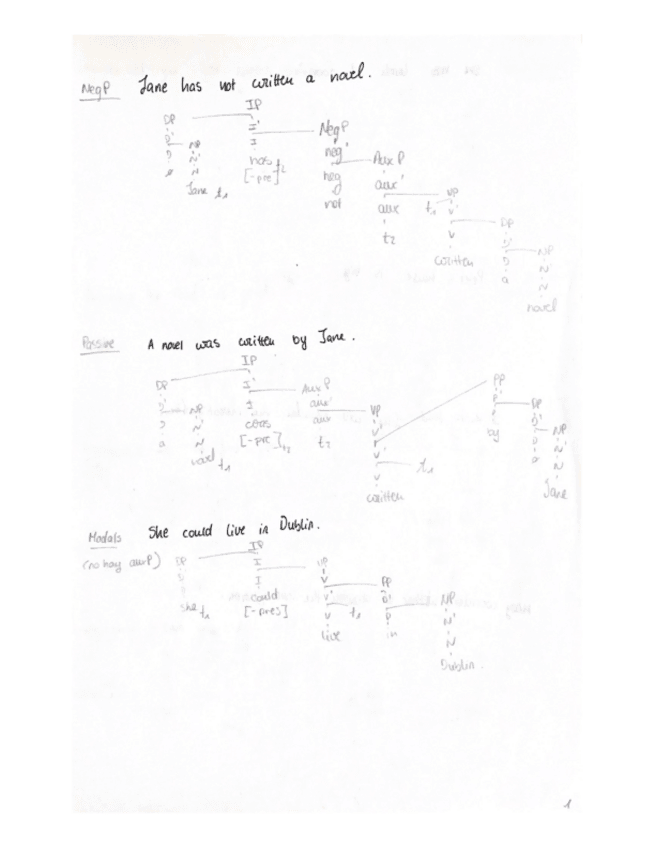 NegP Jane has not written a novel.
IP
DP I' NegP
D' NP I neg' AuxP
D N' has t2 neg aux' VP
ø N [-pre] not aux t1 V' DP
Jane t1 t2 V D' NP
written D N'
a N
novel
Passive A novel was written by Jane.
IP
DP I' AuxP PP
D' NP I aux' VP P' DP
D N' was aux V' P D' NP
a N [-pre] t2 t2 V' by D N'
novel t1 V t1 ø N
written Jane
Modals She could live in Dublin.
(no hay auxP) IP
DP I VP
D I V PP
D could V' P' NP
she t1 [-pres] V t1 P N'
live in N
Dublin.
1